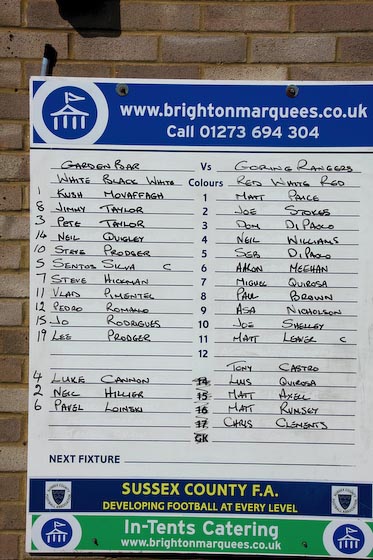 www.brightonmarquees.co.uk
Call 01273 694 304
GARDEN BAR Vs GORING RANGERS
WHITE BLACK WHITE Colours RED WHITE RED
1 KUSH MOVAFFAGH 1 MATT PAICE
8 JIMMY TAYLOR 2 JOE STOKES
3 PETE TAYLOR 3 DOM DI PAOLO
14 NEIL QUIGLEY 4 NEIL WILLIAMS
10 STEVE PRODGER 5 SEB DI PAOLO
5 SENTOS SILVA C 6 AARON MEEHAN
7 STEVE HICKMAN 7 MIGUEL QUIROSA
11 VLAD PIMENTEL 8 PAUL BROWN
12 PEDRO ROMANO 9 ASA NICHOLSON
15 JO RODRIGUES 10 JOE SHELLEY
19 LEE PRODGER 11 MATT LEAVER C
12
TONY CASTRO
4 LUKE CANNON 14 LUIS QUIROSA
2 NEIL HILLIER 15 MATT AXELL
6 PAVEL LOINSKI 16 MATT RUMSEY
17 CHRIS CLEMENTS
GK
NEXT FIXTURE
SUSSEX COUNTY F.A.
DEVELOPING FOOTBALL AT EVERY LEVEL
In-Tents Catering
www.brightonmarquees.co.uk